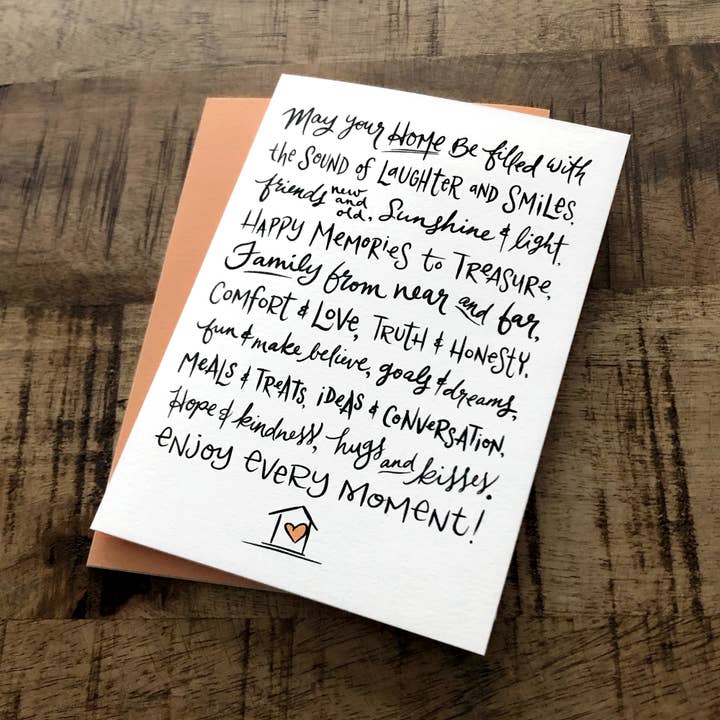 May your Home Be filled with
the SOUND of LAUGHTER and SMiLES.
friends new and old, Sunshine & light.
HAPPY MEMORiES to TREASURE,
Family from near and far,
COMFORT & LOVE, TRUTH & HONESTY.
fun & make believe, goals & dreams,
MEALS & TREATS, iDEAS & CONVERSATION,
Hope & kindness, hugs and kisses.
ENJOY EVERY MOMENT!